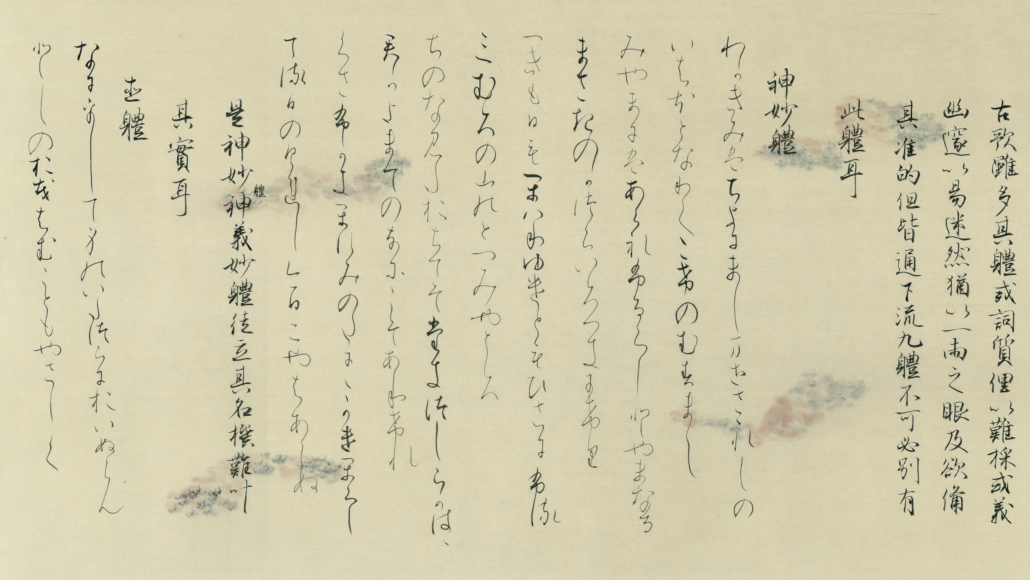 古歌雖多其體或詞質俚以難採或義
幽邃以易迷然猶以一両之眼及欲備
其准的但皆通下流九體不可必別有
此體耳
神妙體
わかきみはちよにましませさゝれしの
いはほとなりてこけのむすまて
みやまにはあられふるらしとやまなる
まさきのかつらいろつきにけり
つきも日もかはりゆけともひさにふる
三むろの山のとつみやところ
ちのなみたおちてそたきつしらかはゝ
君かよまてのなにこそありけれ
くさふかきかすみのたにゝかけかくし
てる日のくれしけふにやはあらぬ
是神妙體神義妙體徒立其名撰難叶
其實耳
直體
なにをして身のいたつらにおいぬらん
としのおもはむこともやさしく